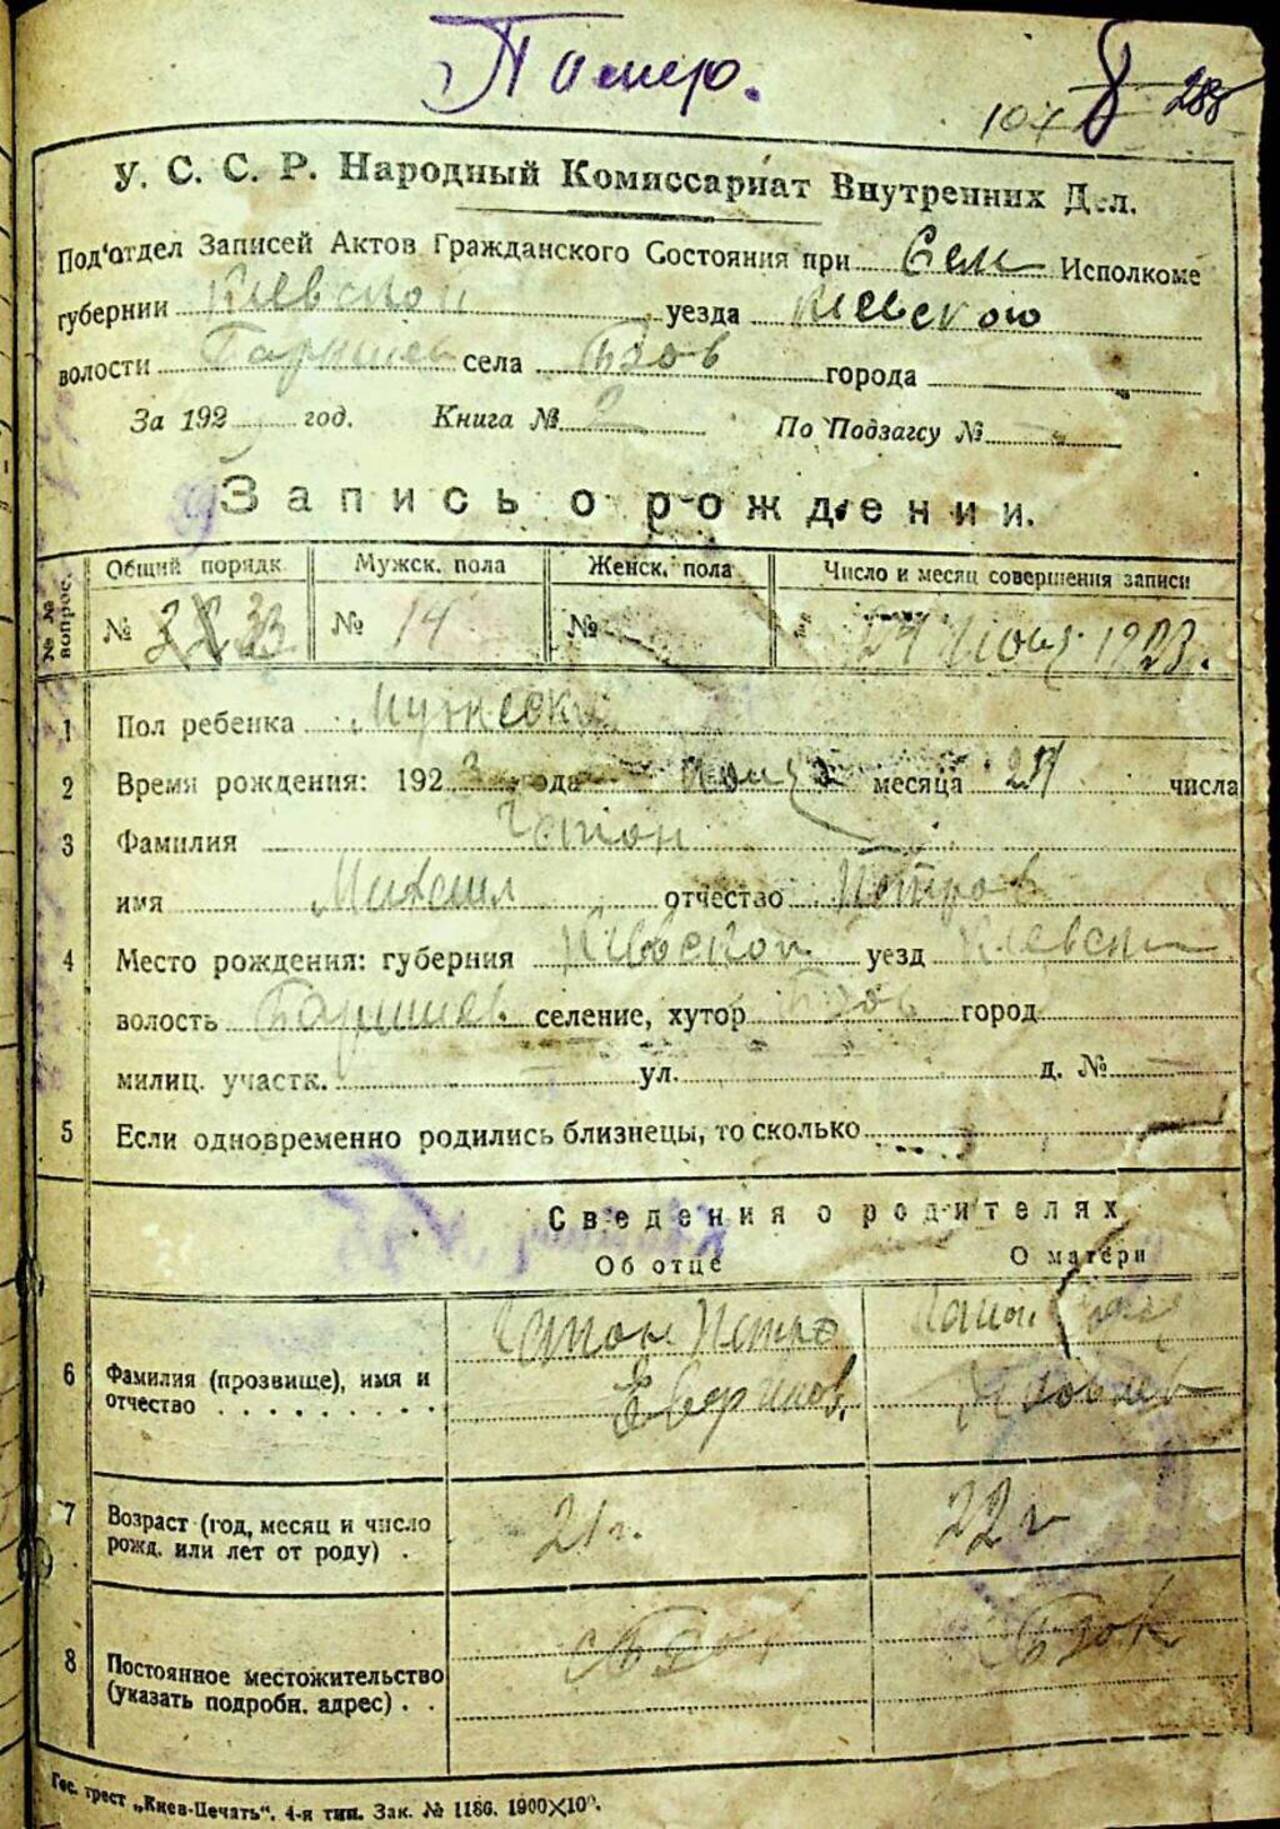 Помер.
104 288
У. С. С. Р. Народный Комиссариат Внутренних Дел.
Под'отдел Записей Актов Гражданского Состояния при Сел Исполкоме
губернии Киевской уезда Киевского
волости села Бзов города
За 192 год. Книга № 2 По Подзагсу №
Запись о рождении.
№ № вопрос. Общий порядк. Мужск. пола Женск. пола Число и месяц совершения записи
№ 33 № 14 № 24 1923.
1 Пол ребенка Мужеск
2 Время рождения: 1923 года месяца 24 числа
3 Фамилия
имя Михаил отчество Петров
4 Место рождения: губерния Киевской уезд Киевск
волость селение, хутор Бзов город
милиц. участк. ул. д. №
5 Если одновременно родились близнецы, то сколько
Сведения о родителях
Об отце О матери
6 Фамилия (прозвище), имя и отчество Петро
Яковлев
7 Возраст (год, месяц и число рожд. или лет от роду) 21 г. 22 г
8 Постоянное местожительство (указать подробн. адрес)
Гос. трест „Киев-Печать“. 4-я тип. Зак. № 1186. 1900×10⁰.